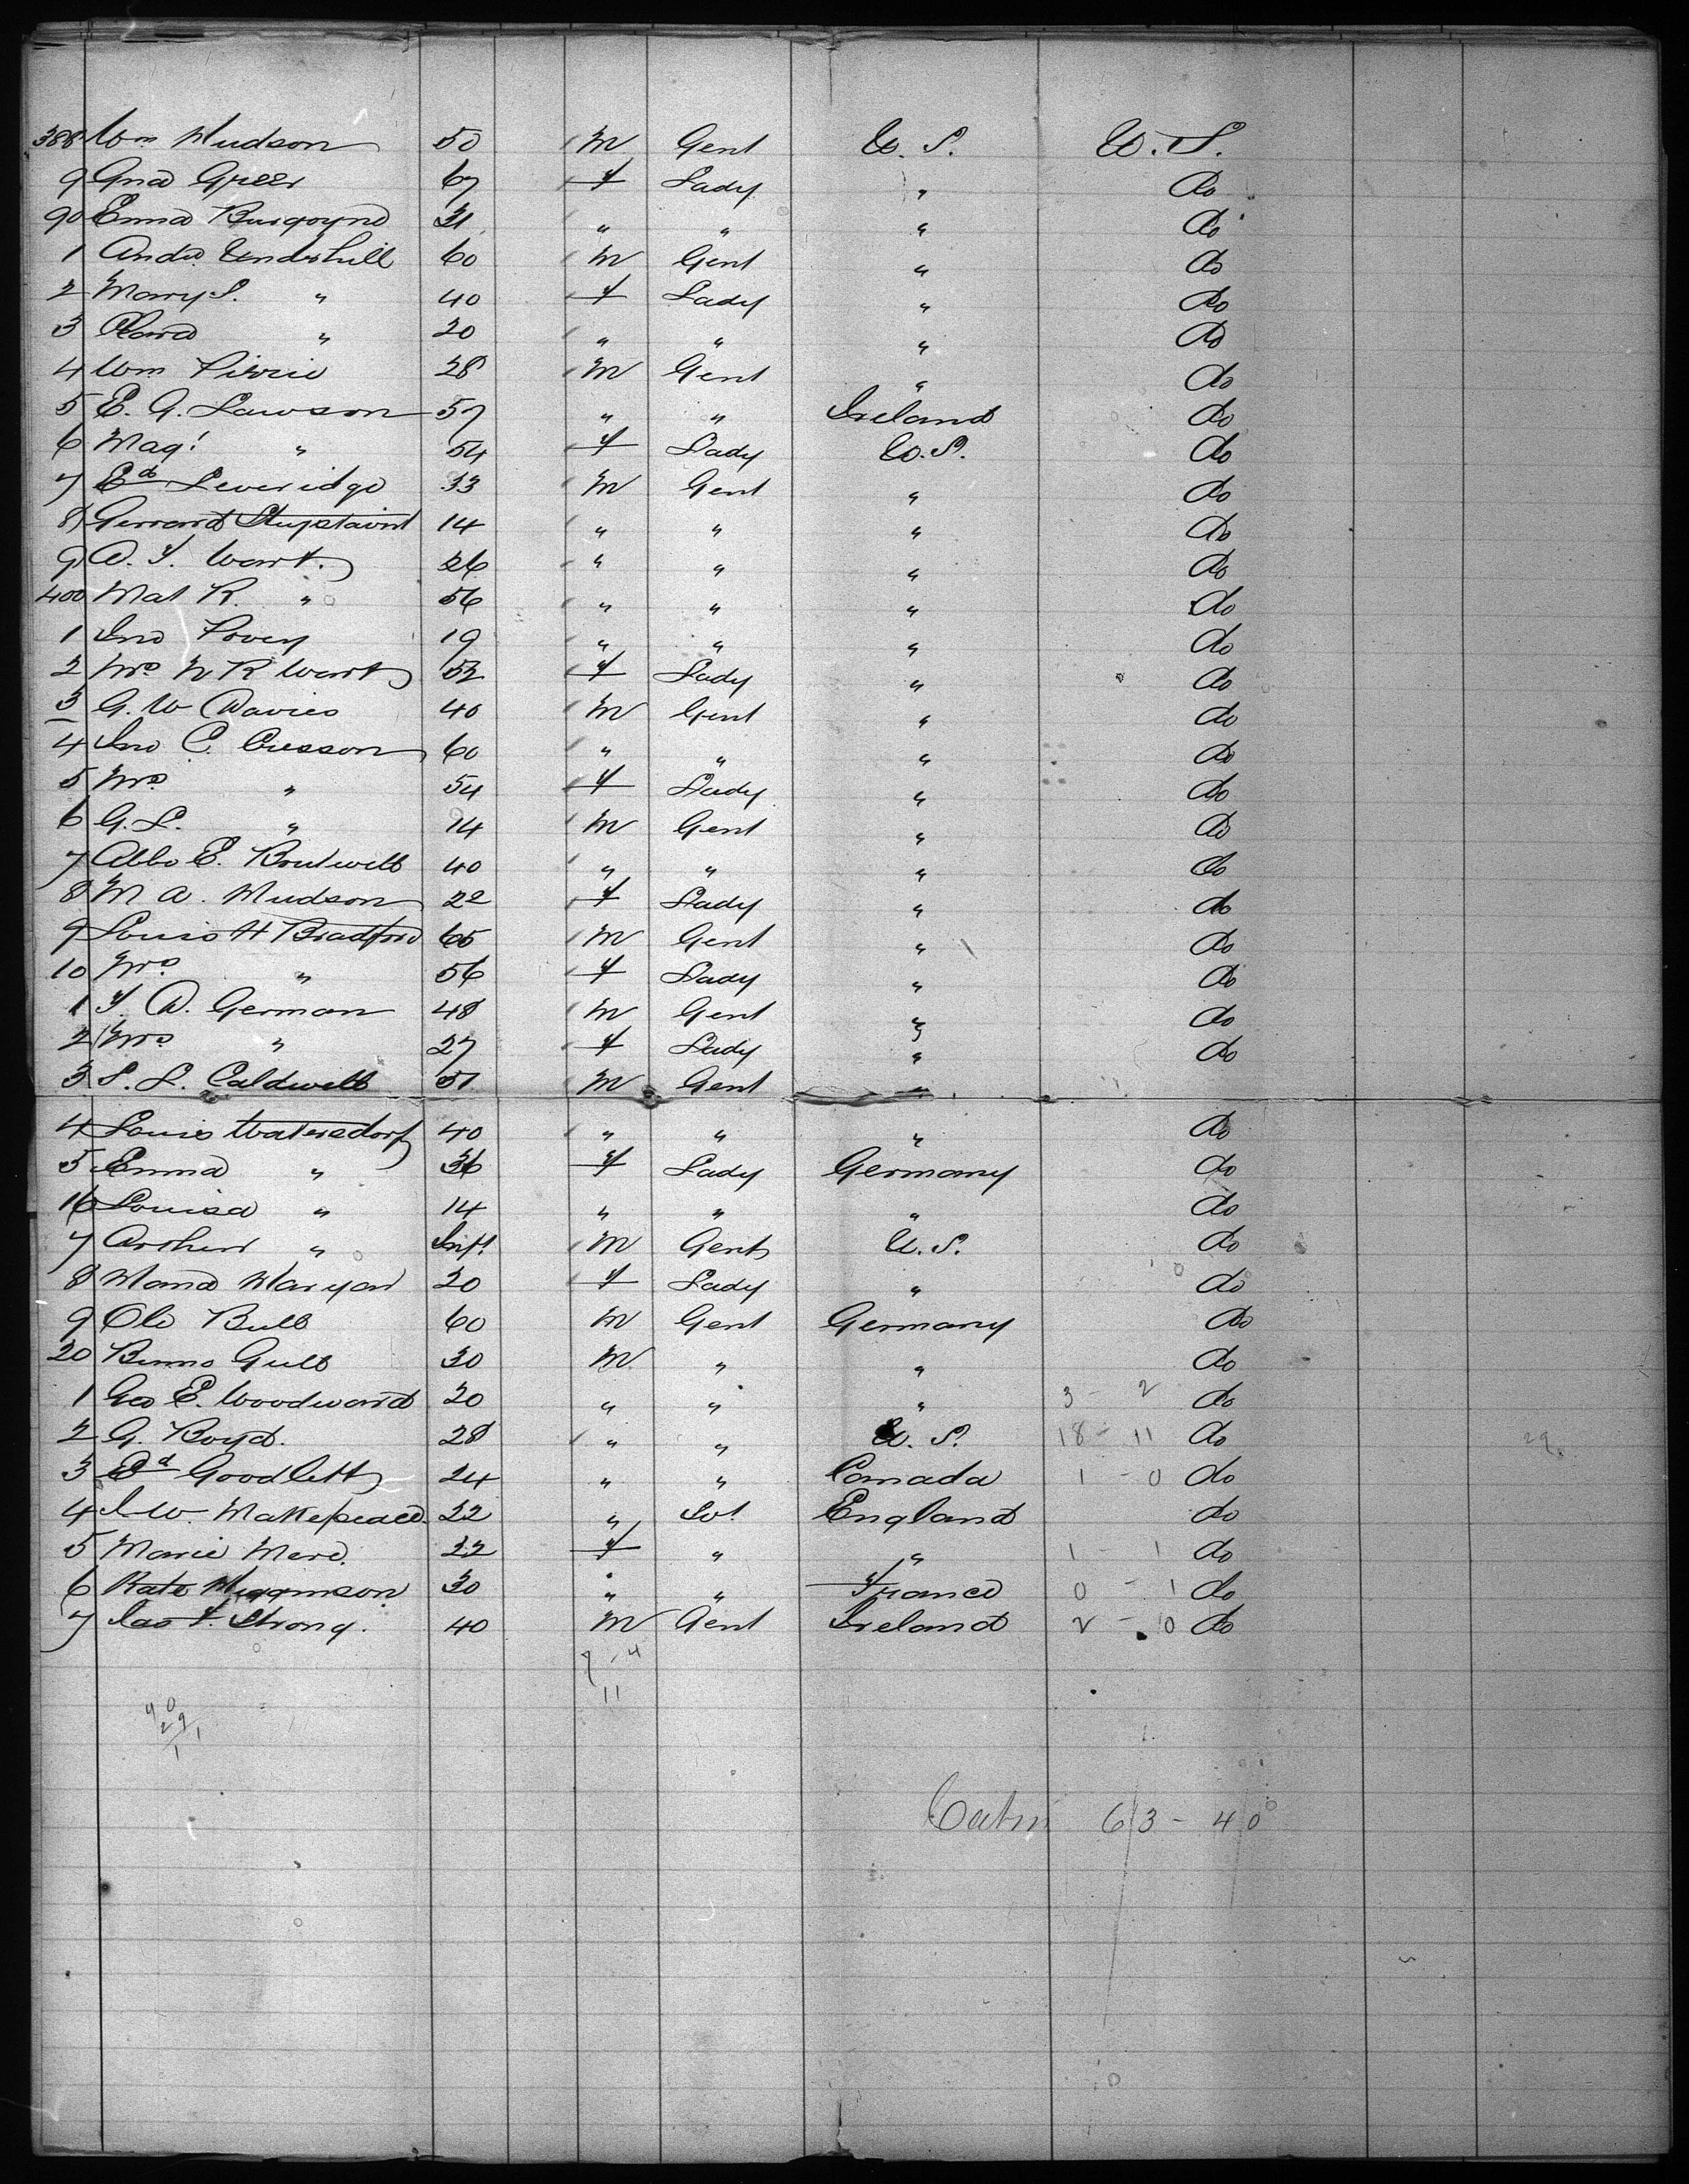 388 Wm Hudson 50 M Gent U. S. U. S.
9 Greer 67 f Lady " do
90 Emma Burgoyne 31 " " " do
1 Andw. Underhill 60 M Gent " do
2 Mary S. " 40 f Lady " do
3 Clara " 20 " " " do
4 Wm Pirrie 28 M Gent " do
5 E. G. Lawson 57 " " Ireland do
6 Magt " 54 f Lady U. S. do
7 Ed Leveridge 33 M Gent " do
8 Gerrard 14 " " " do
9 26 " " " do
400 Mat R. " 56 " " " do
1 Jno Povey 19 " " " do
2 Mrs 52 f Lady " do
3 G. W Davies 40 M Gent " do
4 Jno C. Cresson 60 " " " do
5 Mrs " 54 f Lady " do
6 G. L. " 14 M Gent " do
7 Abbe E. 40 " " " do
8 M A. Hudson 22 f Lady " do
9 Louis H Bradford 65 M Gent " do
10 Mrs " 56 f Lady " do
1 German 48 M Gent " do
2 Mrs " 27 f Lady " do
3 S. L. Caldwell 51 M Gent "
4 Louis Watersdorf 40 " " " do
5 Emma " 36 f Lady Germany do
16 Louisa " 14 " " " do
7 Arthur " Inft M Gent U. S. do
8 20 f Lady " do
9 Ole Bull 60 M Gent Germany do
20 30 M " " do
1 Geo E. Woodward 20 " " " 3 - 2 do
2 G. Boyd. 28 " " U. S. 18 - 11 do 29
3 Ed Goodlett 24 " " Canada 1 - 0 do
4 J W. Makepeace 22 " Svt England do
5 Marie 22 f " " 1 - 1 do
6 Kate Higginson 30 " " France 0 - 1 do
7 Jas F. Strong. 40 M Gent Ireland 2 - 0 do
7 - 4
11
40
29
11
Cabin 63 - 40